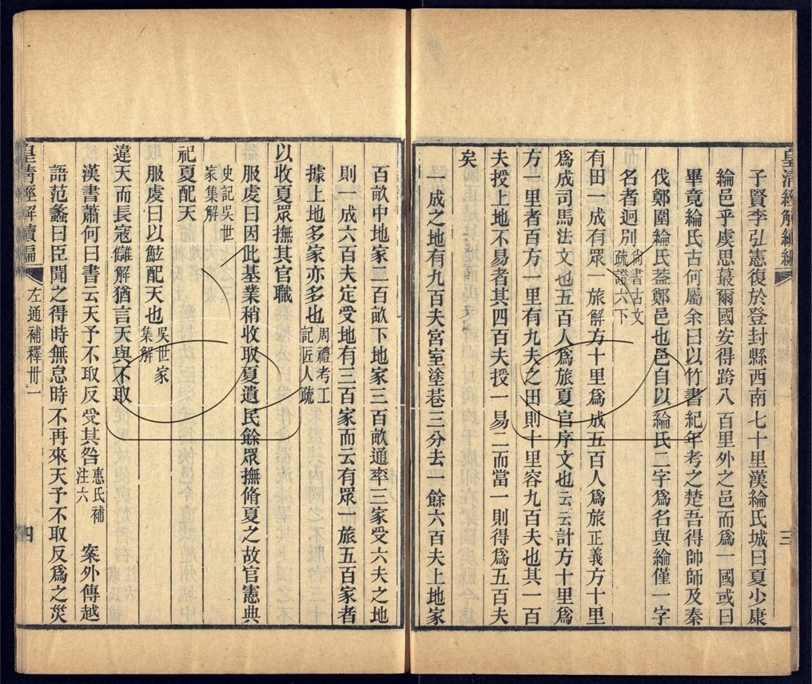 皇清經解續編
子賢李弘憲復於登封縣西南七十里漢綸氏城曰夏少康
綸邑乎虞思蕞爾國安得跨八百里外之邑而爲一國或曰
畢竟綸氏古何屬余曰以竹書紀年考之楚吾得帥師及秦
伐鄭圍綸氏葢鄭邑也邑自以綸氏二字爲名與綸僅一字
名者迥别尙書古文疏證六下
有田一成有眾一旅解方十里爲成五百人爲旅正義方十里
爲成司馬法文也五百人爲旅夏官序文也云云計方十里爲
方一里者百方一里有九夫之田則十里容九百夫也其一百
夫授上地不易者其四百夫授一易二而當一則得爲五百夫
矣
一成之地有九百夫宮室塗巷三分去一餘六百夫上地家
三
百畝中地家二百畝下地家三百畝通率三家受六夫之地
則一成六百夫定受地有三百家而云有眾一旅五百家者
據上地多家亦多也周禮考工記匠人疏
以收夏眾撫其官職
服虔曰因此基業稍收取夏遺民餘眾撫脩夏之故官憲典
史記吳世家集解
祀夏配天
服虔曰以鮌配天也吳世家集解
違天而長寇讎解猶言天與不取
漢書蕭何曰書云天予不取反受其咎惠氏補注六 案外傳越
語范蠡曰臣聞之得時無怠時不再來天予不取反爲之災
皇清經解續編
左通補釋卅一
四